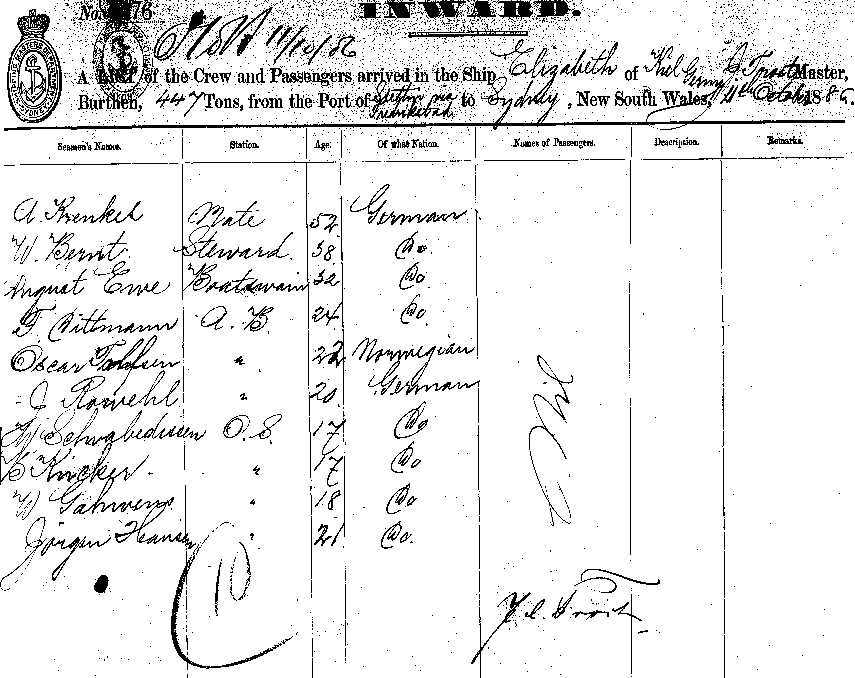 No. 76
INWARD.
14/10/86
A LIST of the Crew and Passengers arrived in the Ship Elizabeth of Kiel Germy Trost Master,
Burthen, 447 Tons, from the Port of Stettin via to Sydney, New South Wales, 11th October 1886.
Seamen's Names. Station. Age. Of what Nation. Names of Passengers. Description. Remarks.
A Krenkel Mate 52 German
W. Bernt Steward 38 Do.
August Ewe Boatswain 32 Do
F. Rittmann A.B. 24 Do
Oscar " 22 Norwegian
J " 20 German
W Schwabedissen O.S. 17 Do
C Kricker " 17 Do
W " 18 Do
Jörgen Hansen " 21 Do.
Nil
10
Trost